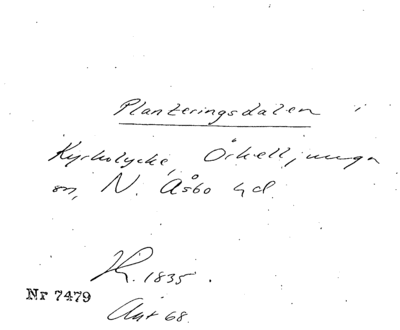 Planteringsdalen i
Kyrkolycke, Örkelljunga
sn, N. Åsbo hd.
K. 1835.
Nr 7479
Akt 68